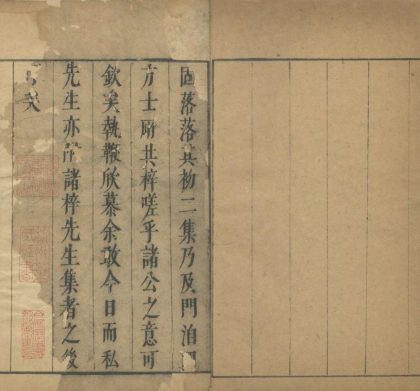 固落落其初二集乃及門洎
方士所共梓嗟乎諸公之意可
欽矣執鞭欣慕余敢今日而私
先生亦附諸梓先生集者之後
矣